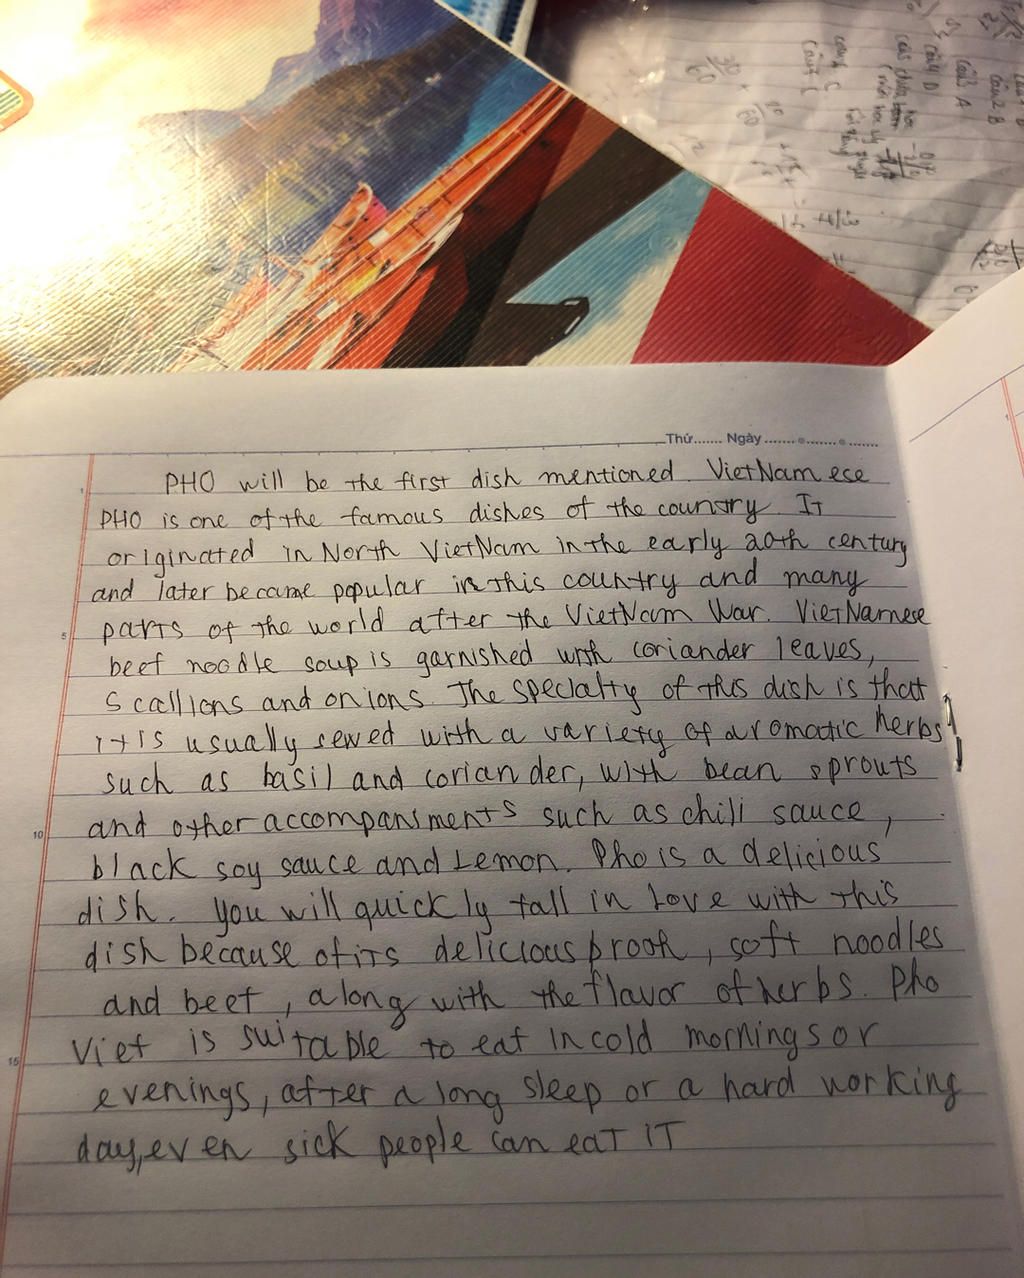 Thứ....... Ngày.......................
PHO will be the first dish mentioned. VietNamese
PHO is one of the famous dishes of the country. It
originated in North VietNam in the early 20th century
and later became popular in this country and many
parts of the world after the VietNam War. VietNamese
beef noodle soup is garnished with coriander leaves,
scallions and onions. The specialty of this dish is that
it is usually sewed with a variety of aromatic herbs
such as basil and coriander, with bean sprouts
and other accompansments such as chili sauce,
black soy sauce and Lemon. Pho is a delicious
dish. you will quickly tall in Love with this
dish because of its delicious brooth, soft noodles
and beef, along with the flavor of herbs. Pho
Viet is suitable to eat in cold mornings or
evenings, after a long sleep or a hard working
day, even sick people can eat IT
5
10
15
câu 2 B
câu 3 A
câu 4 D